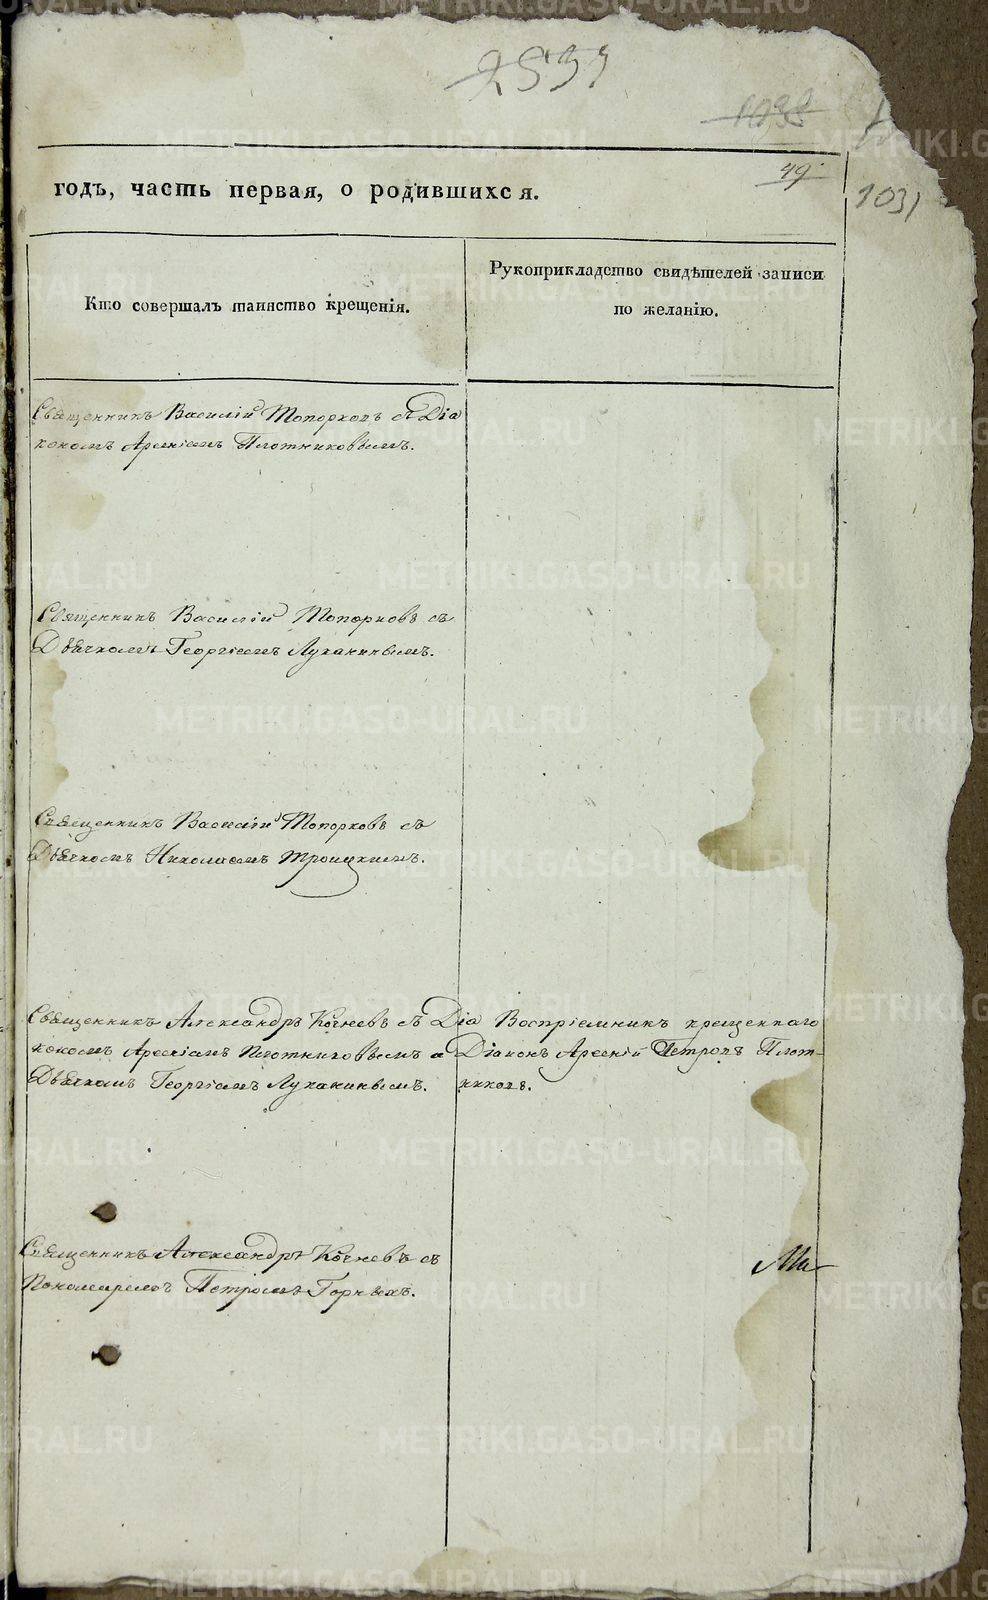 2533
1038
49
1031
годъ, часть первая, о родившихся.
Кто совершалъ таинство крещенія.
Рукоприкладство свидѣтелей записи
по желанію.
Священникъ Василій Топорковъ съ Діа
кономъ Арсеніемъ Плотниковымъ.
Священникъ Василій Топорковъ съ
Дьячкомъ Георгіемъ Луканинымъ.
Священникъ Василій Топорковъ съ
Дьячкомъ Николаемъ Троицкимъ.
Священникъ Александръ Кочневъ съ Діа
кономъ Арсеніемъ Плотниковымъ и
Дьячкомъ Георгіемъ Луканинымъ.
Воспріемникъ крещеннаго
Діаконъ Арсеній Петровъ Плот-
никовъ.
Священникъ Александръ Кочневъ съ
Пономаремъ Петромъ Горныхъ.
METRIKI.GASO-URAL.RU